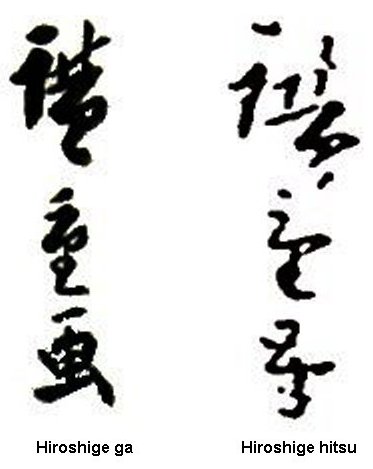 廣重画
廣重筆
Hiroshige ga
Hiroshige hitsu